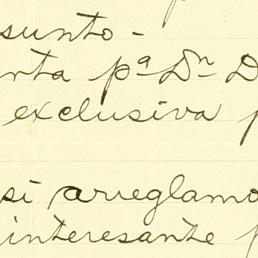 sunto-
nta pª Dn D
exclusiva p
si arreglamo
interesante p